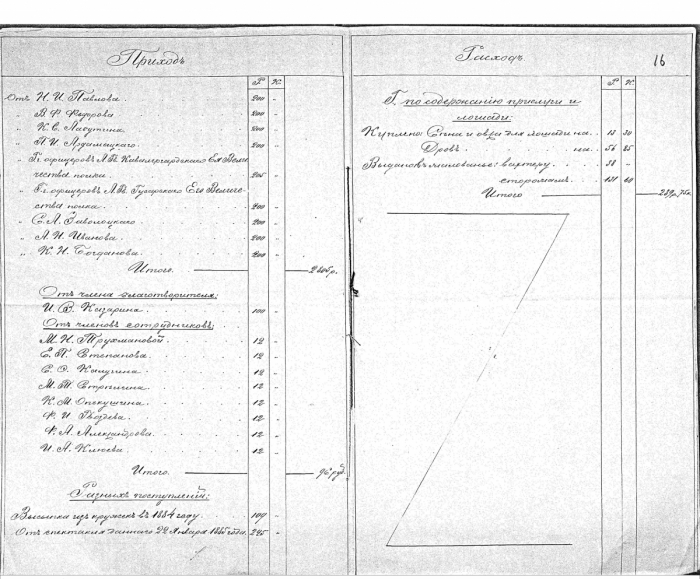 Приходъ
Р К.
Отъ Н. И. Павлова . 200 „
„ В. Ф. Федорова 200 „
„ К. Е. Лапутина . 200 „
„ П. И. 200 „
„ Гг. офицеровъ Л. Гв. Кавалергардскаго Ея Вели
чества полка . 205 „
„ Гг. офицеровъ Л. Гв. Гусарскаго Его Величе-
ства полка . 200 „
„ С. А. Заволоцкаго . 200 „
„ А. И. Иванова . 200 „
„ К. Н. Богданова . 200 „
Итого. р.
Отъ члена благотворителя:
И. В. Казарина . 100 „
Отъ членовъ сотрудниковъ:
М. Н. Трухмановой . 12 „
Е. П. Степанова . 12 „
Е. О. Калугина . 12 „
М. Т. 12 „
К. М. Опекушина . 12 „
Ф. И. Гвоздева . 12 „
Ф. А. Александрова . 12 „
И. А. Клюева . 12 „
Итого. 96 руб.
Разныхъ поступленій:
Высыпка изъ кружекъ въ 1884 году . „
Отъ спектакля даннаго 22 Января 1885 года. 245 „
Расходъ
16
Р К.
Г. по содержанію прислуги и
лошади:
Куплено: Сѣна и овса для лошади на . 13 30
Дровъ . на . 56 85
Выдано жалованье: вахтеру . 38 „
сторожамъ . 131 60
Итого 239 р. 75 к.